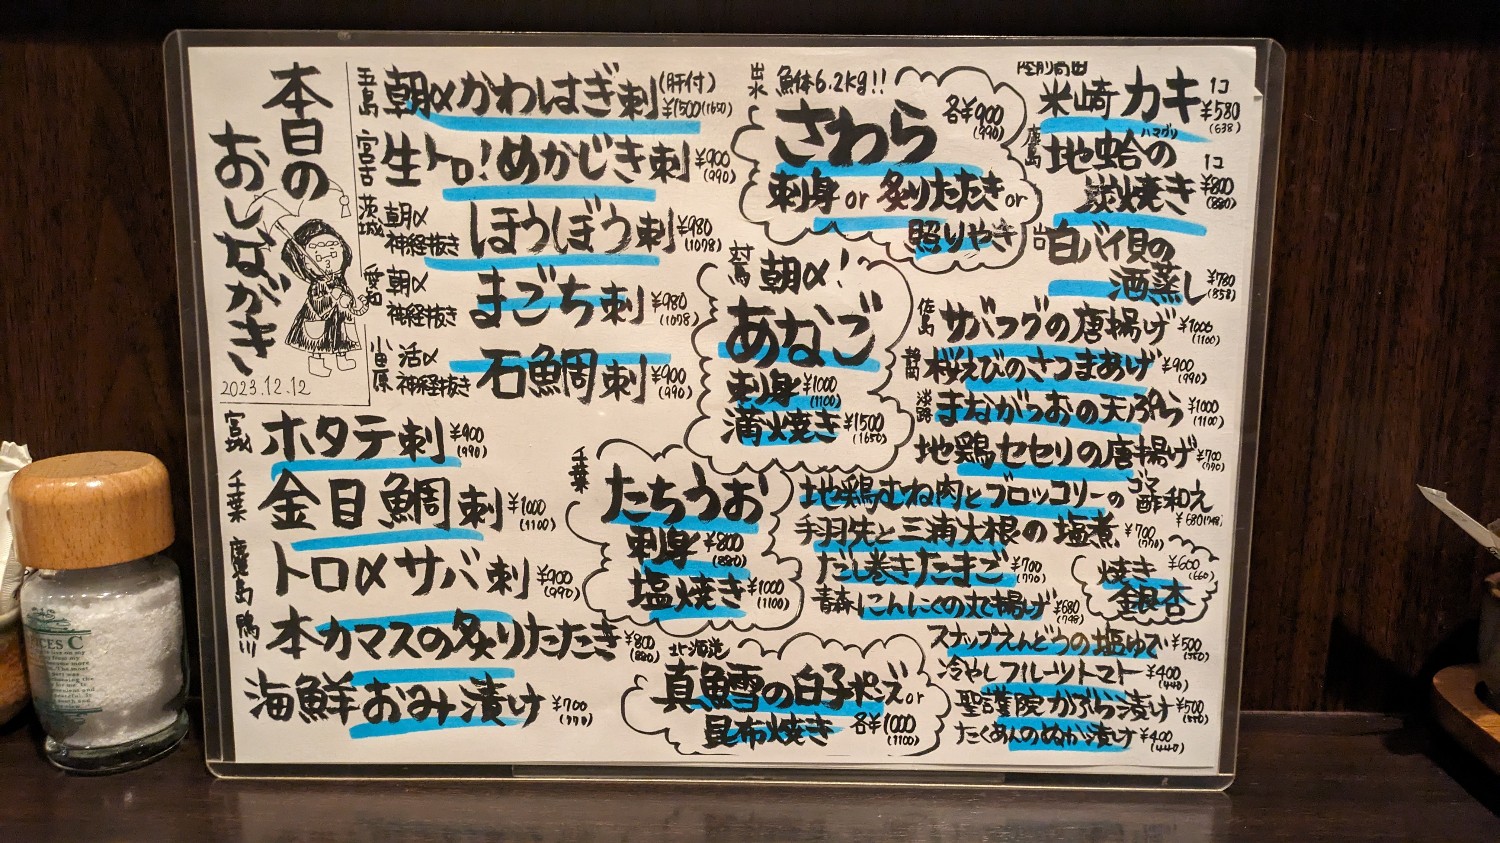 本日の
おしながき
2023.12.12
五島 朝〆かわはぎ刺(肝付) ¥1500(1650)
宮古 生トロ!めかじき刺 ¥900(990)
茨城 朝〆神経抜き ほうぼう刺 ¥980(1078)
愛知 朝〆神経抜き まごち刺 ¥980(1078)
小田原 活〆神経抜き 石鯛刺 ¥900(990)
宮城 ホタテ刺 ¥900(990)
千葉 金目鯛刺 ¥1000(1100)
鹿島 トロ〆サバ刺 ¥900(990)
鴨川 本カマスの炙りたたき ¥800(880)
海鮮おみ漬け ¥700(770)
出水 魚体6.2kg!!
さわら 各¥900(990)
刺身 or 炙りたたき or
照りやき
対馬 朝〆!
あなご
刺身 ¥1000(1100)
蒲焼き ¥1500(1650)
千葉
たちうお
刺身 ¥800(880)
塩焼き ¥1000(1100)
北海道
真鱈の白子ポン酢 or
昆布焼き 各¥1000(1100)
陸前高田
米崎カキ 1コ ¥580(638)
鹿島 地蛤の ハマグリ
炭焼き 1コ ¥800(880)
白バイ貝の
酒蒸し ¥780(858)
佐島 サバフグの唐揚げ ¥1000(1100)
静岡 桜えびのさつまあげ ¥900(990)
淡路 まながつおの天ぷら ¥1000(1100)
地鶏セセリの唐揚げ ¥700(770)
地鶏むね肉とブロッコリーのゴマ酢和え ¥680(748)
手羽先と三浦大根の塩煮 ¥700(770)
だし巻きたまご ¥700(770)
青森にんにくの丸揚げ ¥680(748)
焼き
銀杏 ¥600(660)
スナップえんどうの塩ゆで ¥500(550)
冷やしフルーツトマト ¥400(440)
聖護院かぶら漬け ¥500(550)
たくあんのぬか漬け ¥400(440)